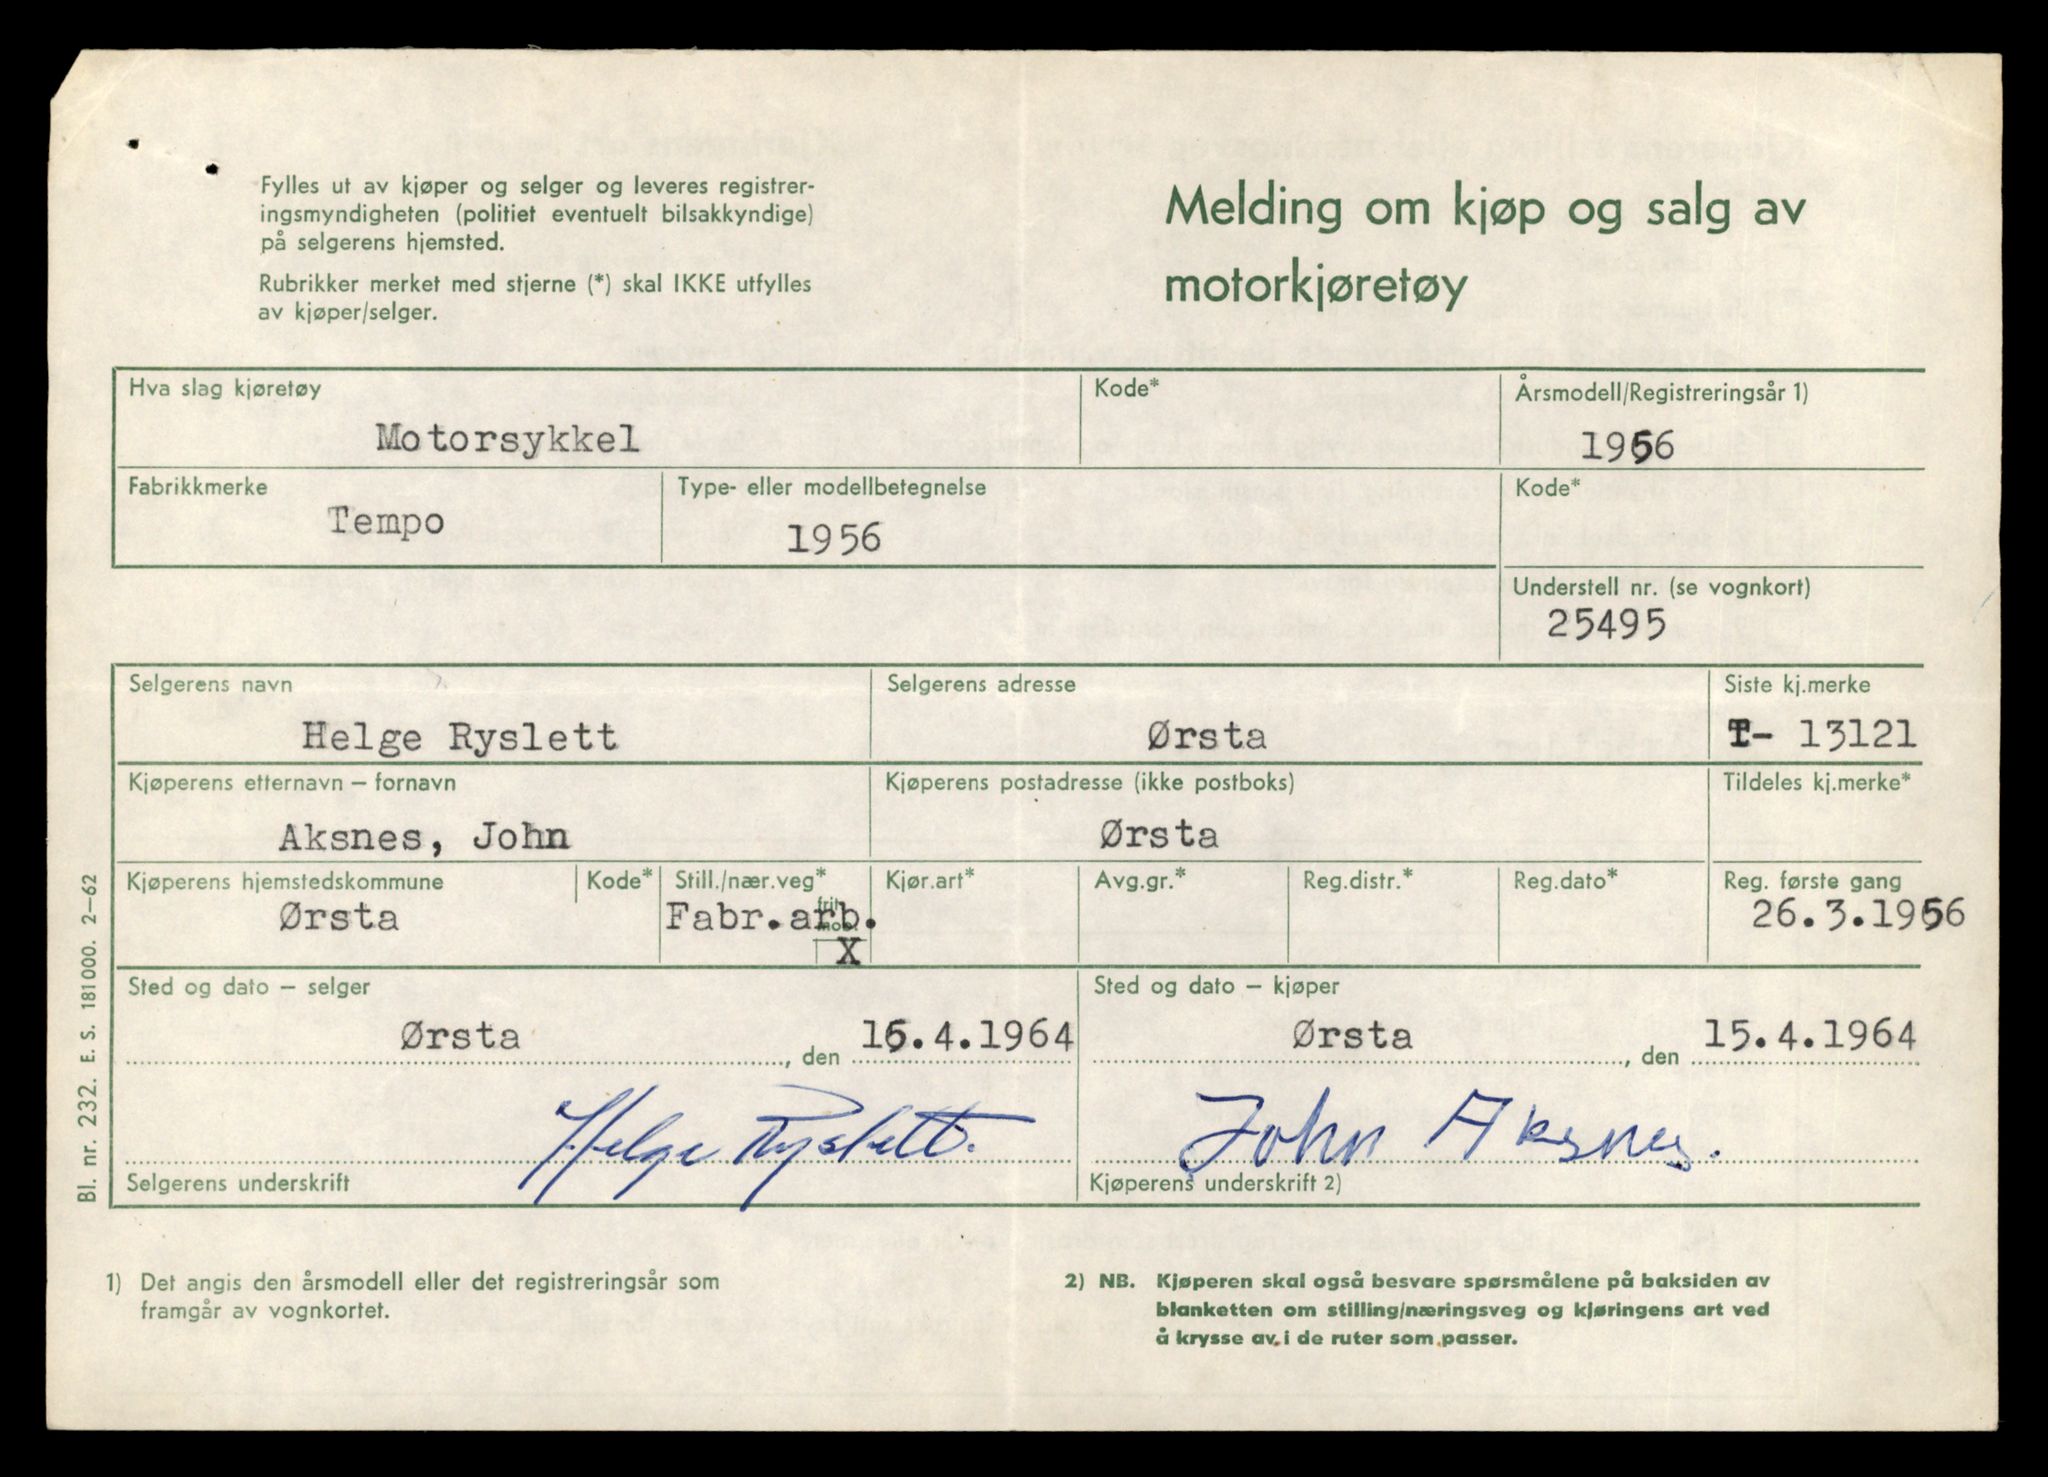 Fylles ut av kjøper og selger og leveres registrer-
ingsmyndigheten (politiet eventuelt bilsakkyndige)
på selgerens hjemsted.
Rubrikker merket med stjerne (*) skal IKKE utfylles
av kjøper/selger.
Melding om kjøp og salg av
motorkjøretøy
Hva slag kjøretøy
Motorsykkel
Kode*
Årsmodell/Registreringsår 1)
1956
Fabrikkmerke
Tempo
Type- eller modellbetegnelse
1956
Kode*
Understell nr. (se vognkort)
25495
Selgerens navn
Helge Ryslett
Selgerens adresse
Ørsta
Siste kj.merke
T- 13121
Kjøperens etternavn – fornavn
Aksnes, John
Kjøperens postadresse (ikke postboks)
Ørsta
Tildeles kj.merke*
Kjøperens hjemstedskommune
Ørsta
Kode*
Still./nær.veg*
Fabr.arb.
X
Kjør.art*
Avg.gr.*
Reg.distr.*
Reg.dato*
Reg. første gang
26.3.1956
Sted og dato – selger
Ørsta, den 15.4.1964
Helge Ryslett.
Selgerens underskrift
Sted og dato – kjøper
Ørsta, den 15.4.1964
John Aksnes.
Kjøperens underskrift 2)
1) Det angis den årsmodell eller det registreringsår som
framgår av vognkortet.
2) NB. Kjøperen skal også besvare spørsmålene på baksiden av
blanketten om stilling/næringsveg og kjøringens art ved
å krysse av i de ruter som passer.
Bl. nr. 232. E. S. 181000. 2–62